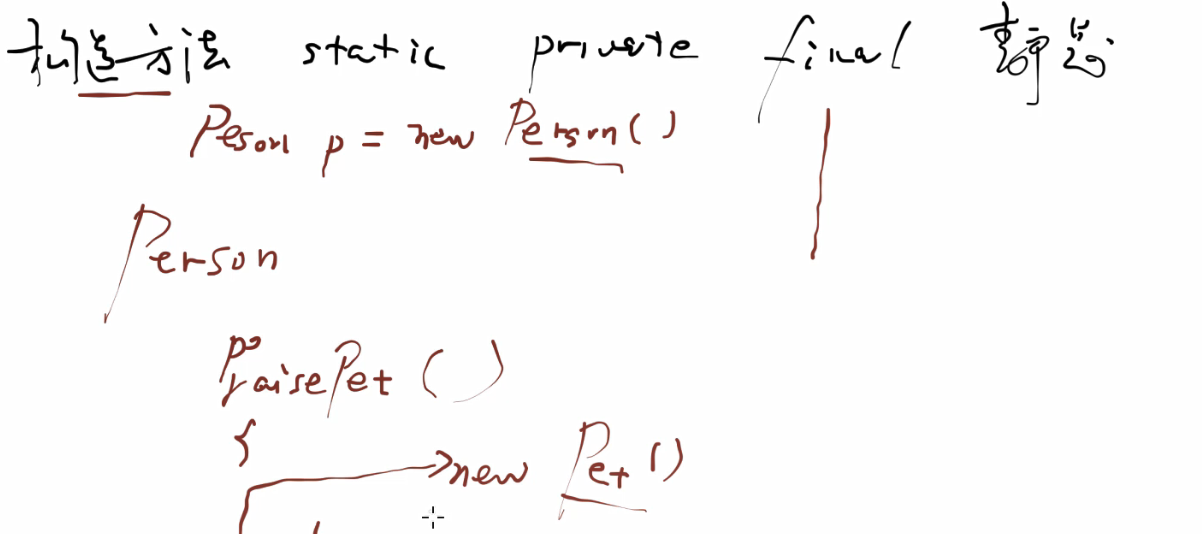 构造方法 static private final 静态
Peson p = new Person()
Person
raisePet ()
{
new Pet ()